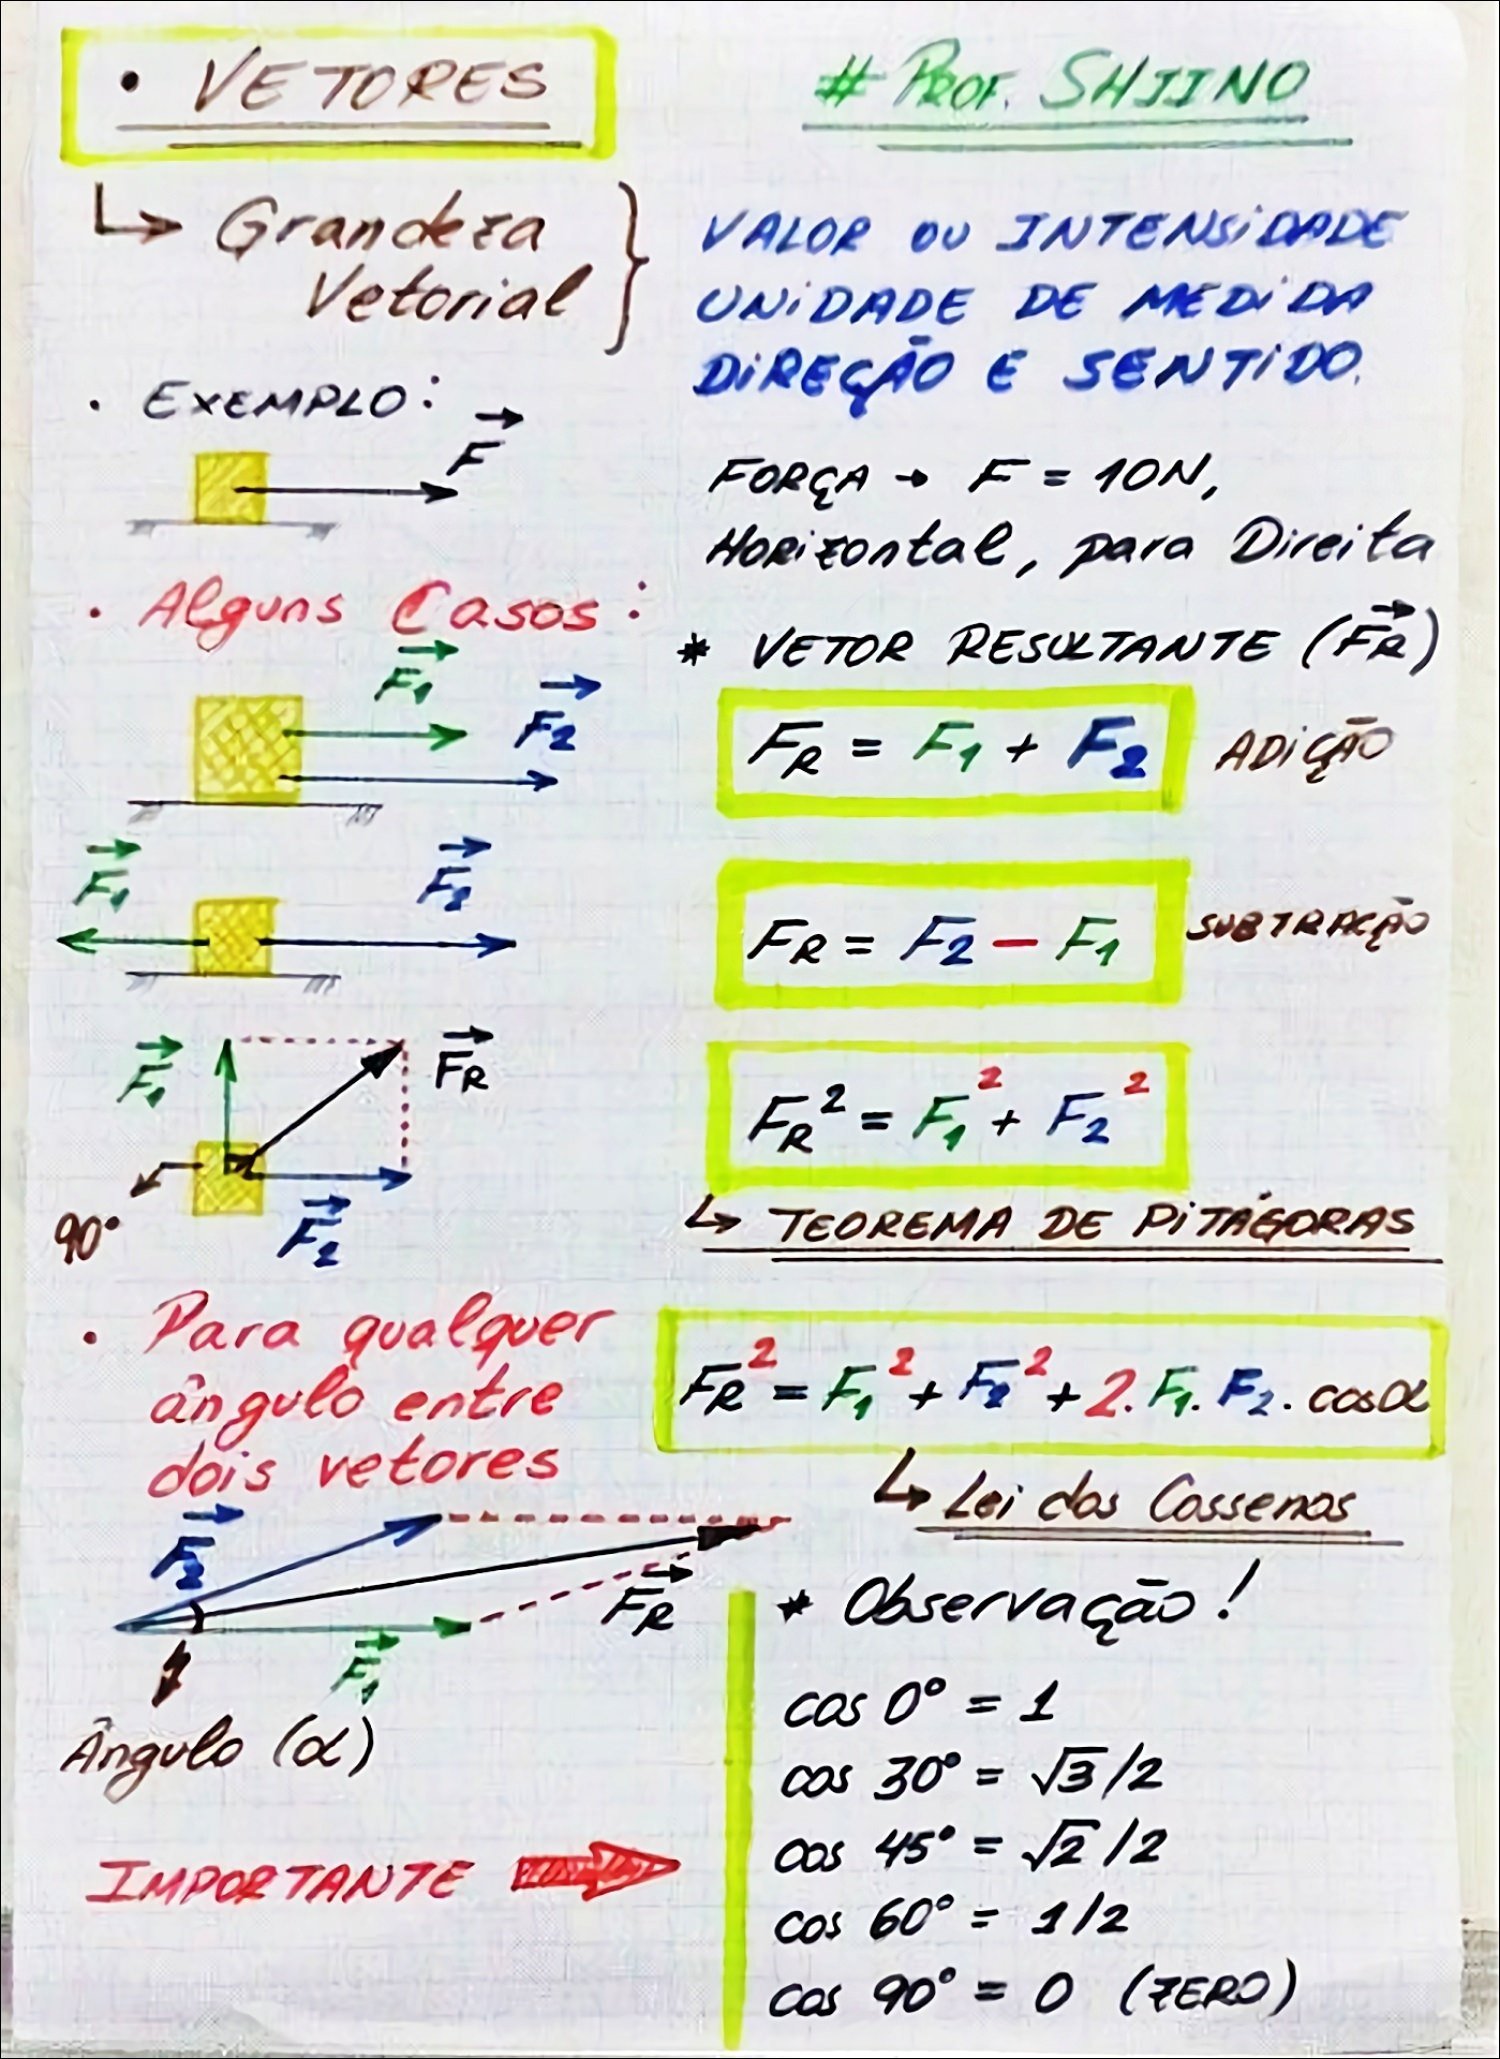 • VETORES
# PROF. SHIINO
↳ Grandeza
Vetorial
VALOR OU INTENSIDADE
UNIDADE DE MEDIDA
DIREÇÃO E SENTIDO.
• EXEMPLO:
F
FORÇA → F = 10N,
Horizontal, para Direita
• Alguns Casos:
* VETOR RESULTANTE (FR)
F1
F2
FR = F1 + F2
ADIÇÃO
F1
F2
FR = F2 − F1
SUBTRAÇÃO
F1
FR
90°
F2
FR² = F1² + F2²
↳ TEOREMA DE PITÁGORAS
• Para qualquer
ângulo entre
dois vetores
FR² = F1² + F2² + 2. F1. F2. cosα
↳ Lei dos Cossenos
F2
FR
F1
Ângulo (α)
* Observação!
cos 0° = 1
cos 30° = √3/2
cos 45° = √2/2
cos 60° = 1/2
cos 90° = 0 (ZERO)
IMPORTANTE